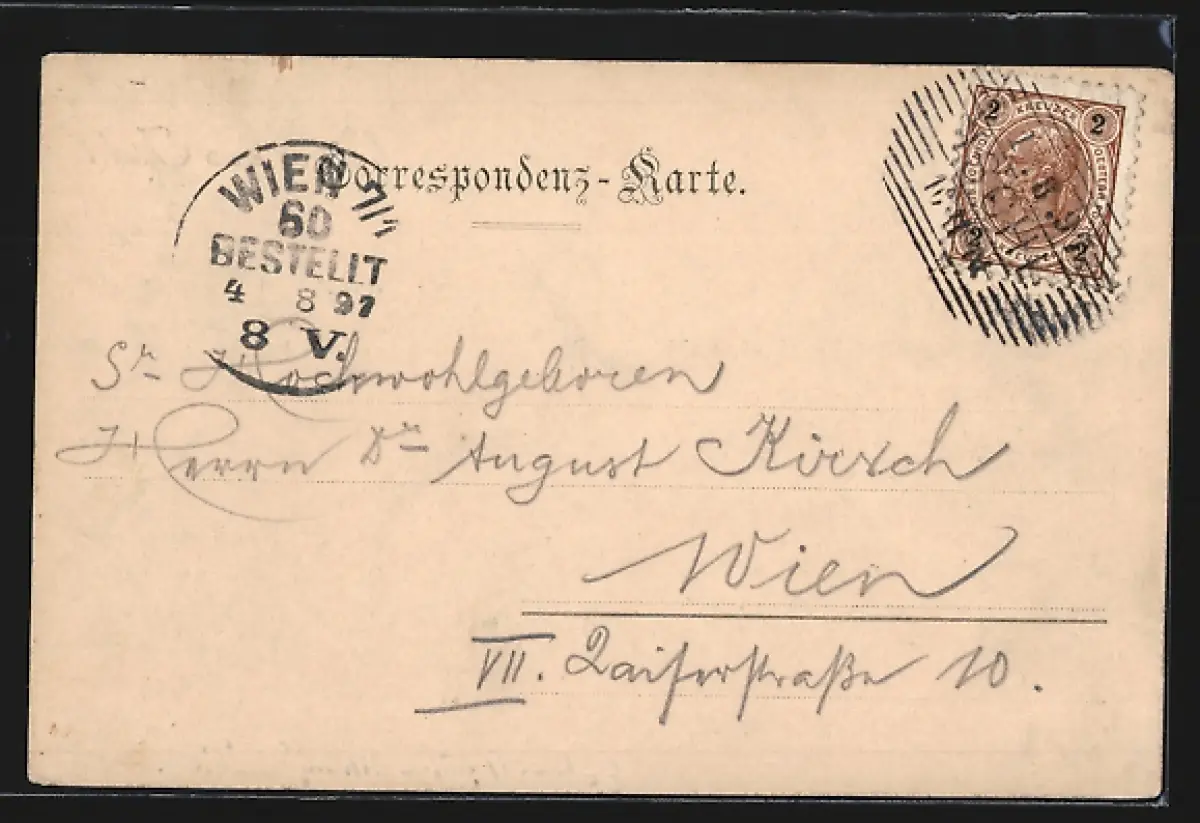 Correspondenz-Karte.
WIEN 7/1
60
BESTELLT
4 8 97
8 V.
2 KREUZER 2
2 2
Sr Hochwohlgeboren
Herrn Dr August Kirsch
Wien
VII. Kaiserstraße 10.